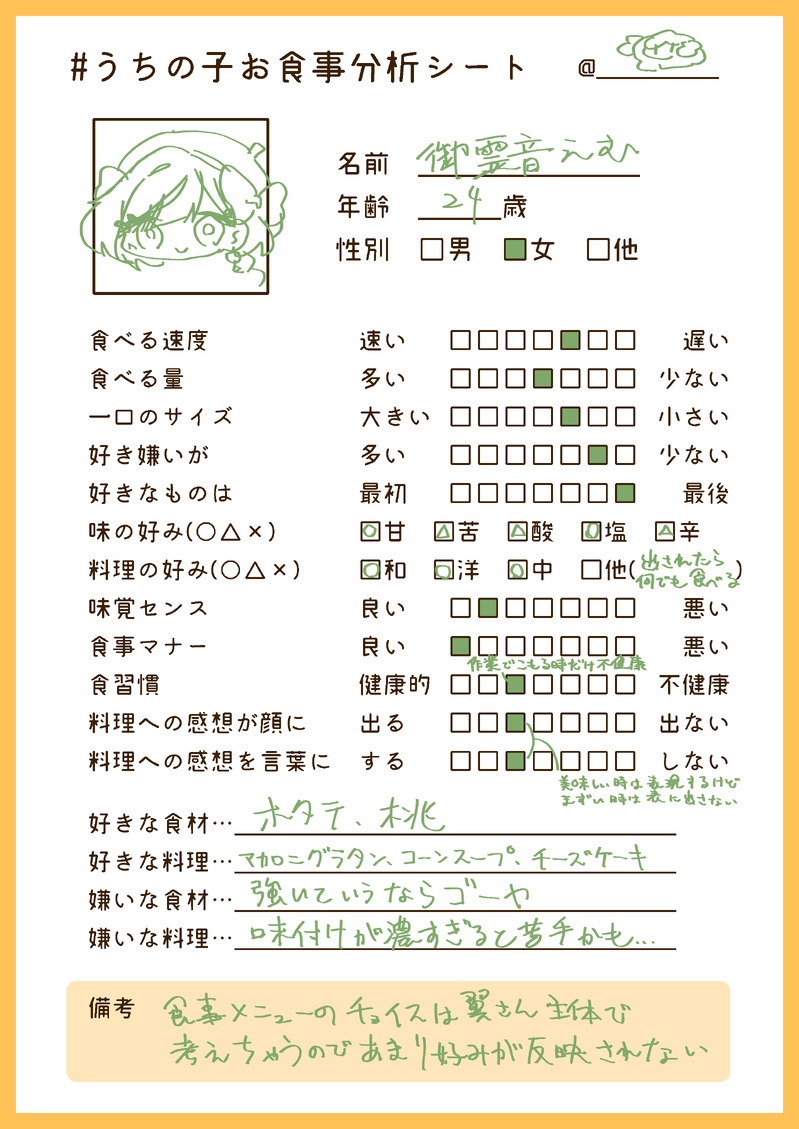 #うちの子お食事分析シート @
名前 御霊音えむ
年齢 24歳
性別 □男 ■女 □他
食べる速度 速い □□□□■□□ 遅い
食べる量 多い □□□■□□□ 少ない
一口のサイズ 大きい □□□□■□□ 小さい
好き嫌いが 多い □□□□□■□ 少ない
好きなものは 最初 □□□□□□■ 最後
味の好み(○△×) ○甘 △苦 △酸 ○塩 △辛
料理の好み(○△×) ○和 ○洋 ○中 □他(出されたら何でも食べる)
味覚センス 良い □■□□□□□ 悪い
食事マナー 良い ■□□□□□□ 悪い
作業でこもる時だけ不健康
食習慣 健康的 □□■□□□□ 不健康
料理への感想が顔に 出る □□■□□□□ 出ない
料理への感想を言葉に する □□■□□□□ しない
美味しい時は表現するけど
まずい時は表に出さない
好きな食材… ホタテ、桃
好きな料理… マカロニグラタン、コーンスープ、チーズケーキ
嫌いな食材… 強いていうならゴーヤ
嫌いな料理… 味付けが濃すぎると苦手かも…
備考 食事メニューのチョイスは翼さん主体で
考えちゃうのであまり好みが反映されない